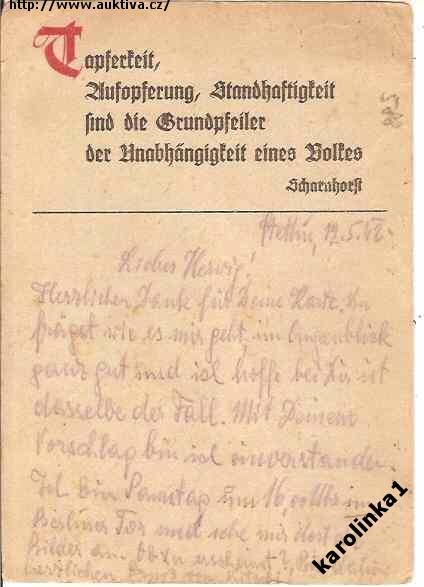 http://www.auktiva.cz/
Tapferkeit,
Aufopferung, Standhaftigkeit
sind die Grundpfeiler
der Unabhängigkeit eines Volkes
Scharnhorst
Stettin, 12.5.42.
Liebes Herwig!
Herzlichen Dank für Deine Karte. Du
fräget wie es mir geht, im Augenblick
ganz gut und ich hoffe bei Dir ist
dasselbe der Fall. Mit Deinem
Vorschlag bin ich einverstanden.
Ich bin Sonntag um 16,00 Uhr im
Berliner Tor und sehe mir dort
Bilder an. Ob
herzlichen
karolinka1